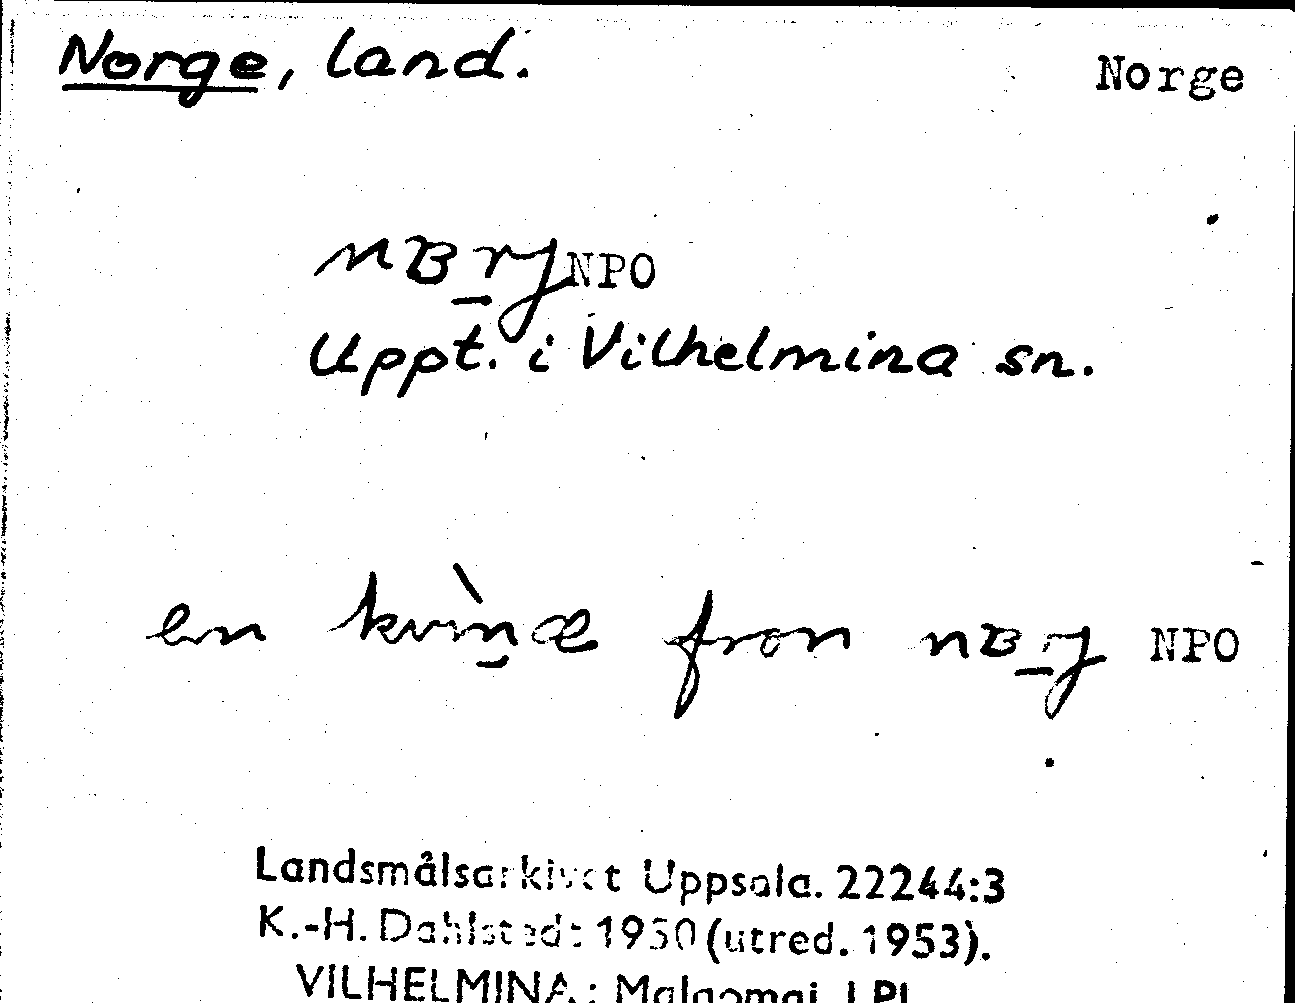 Norge, land.
Norge
nBrj NPO
Uppt. i Vilhelmina sn.
en kvìnæ fron nBrj NPO
Landsmålsarkivet Uppsala. 22244:3
K.-H. Dahlstedt 1950 (utred. 1953).
VILHELMINA: Malgomaj. LPL